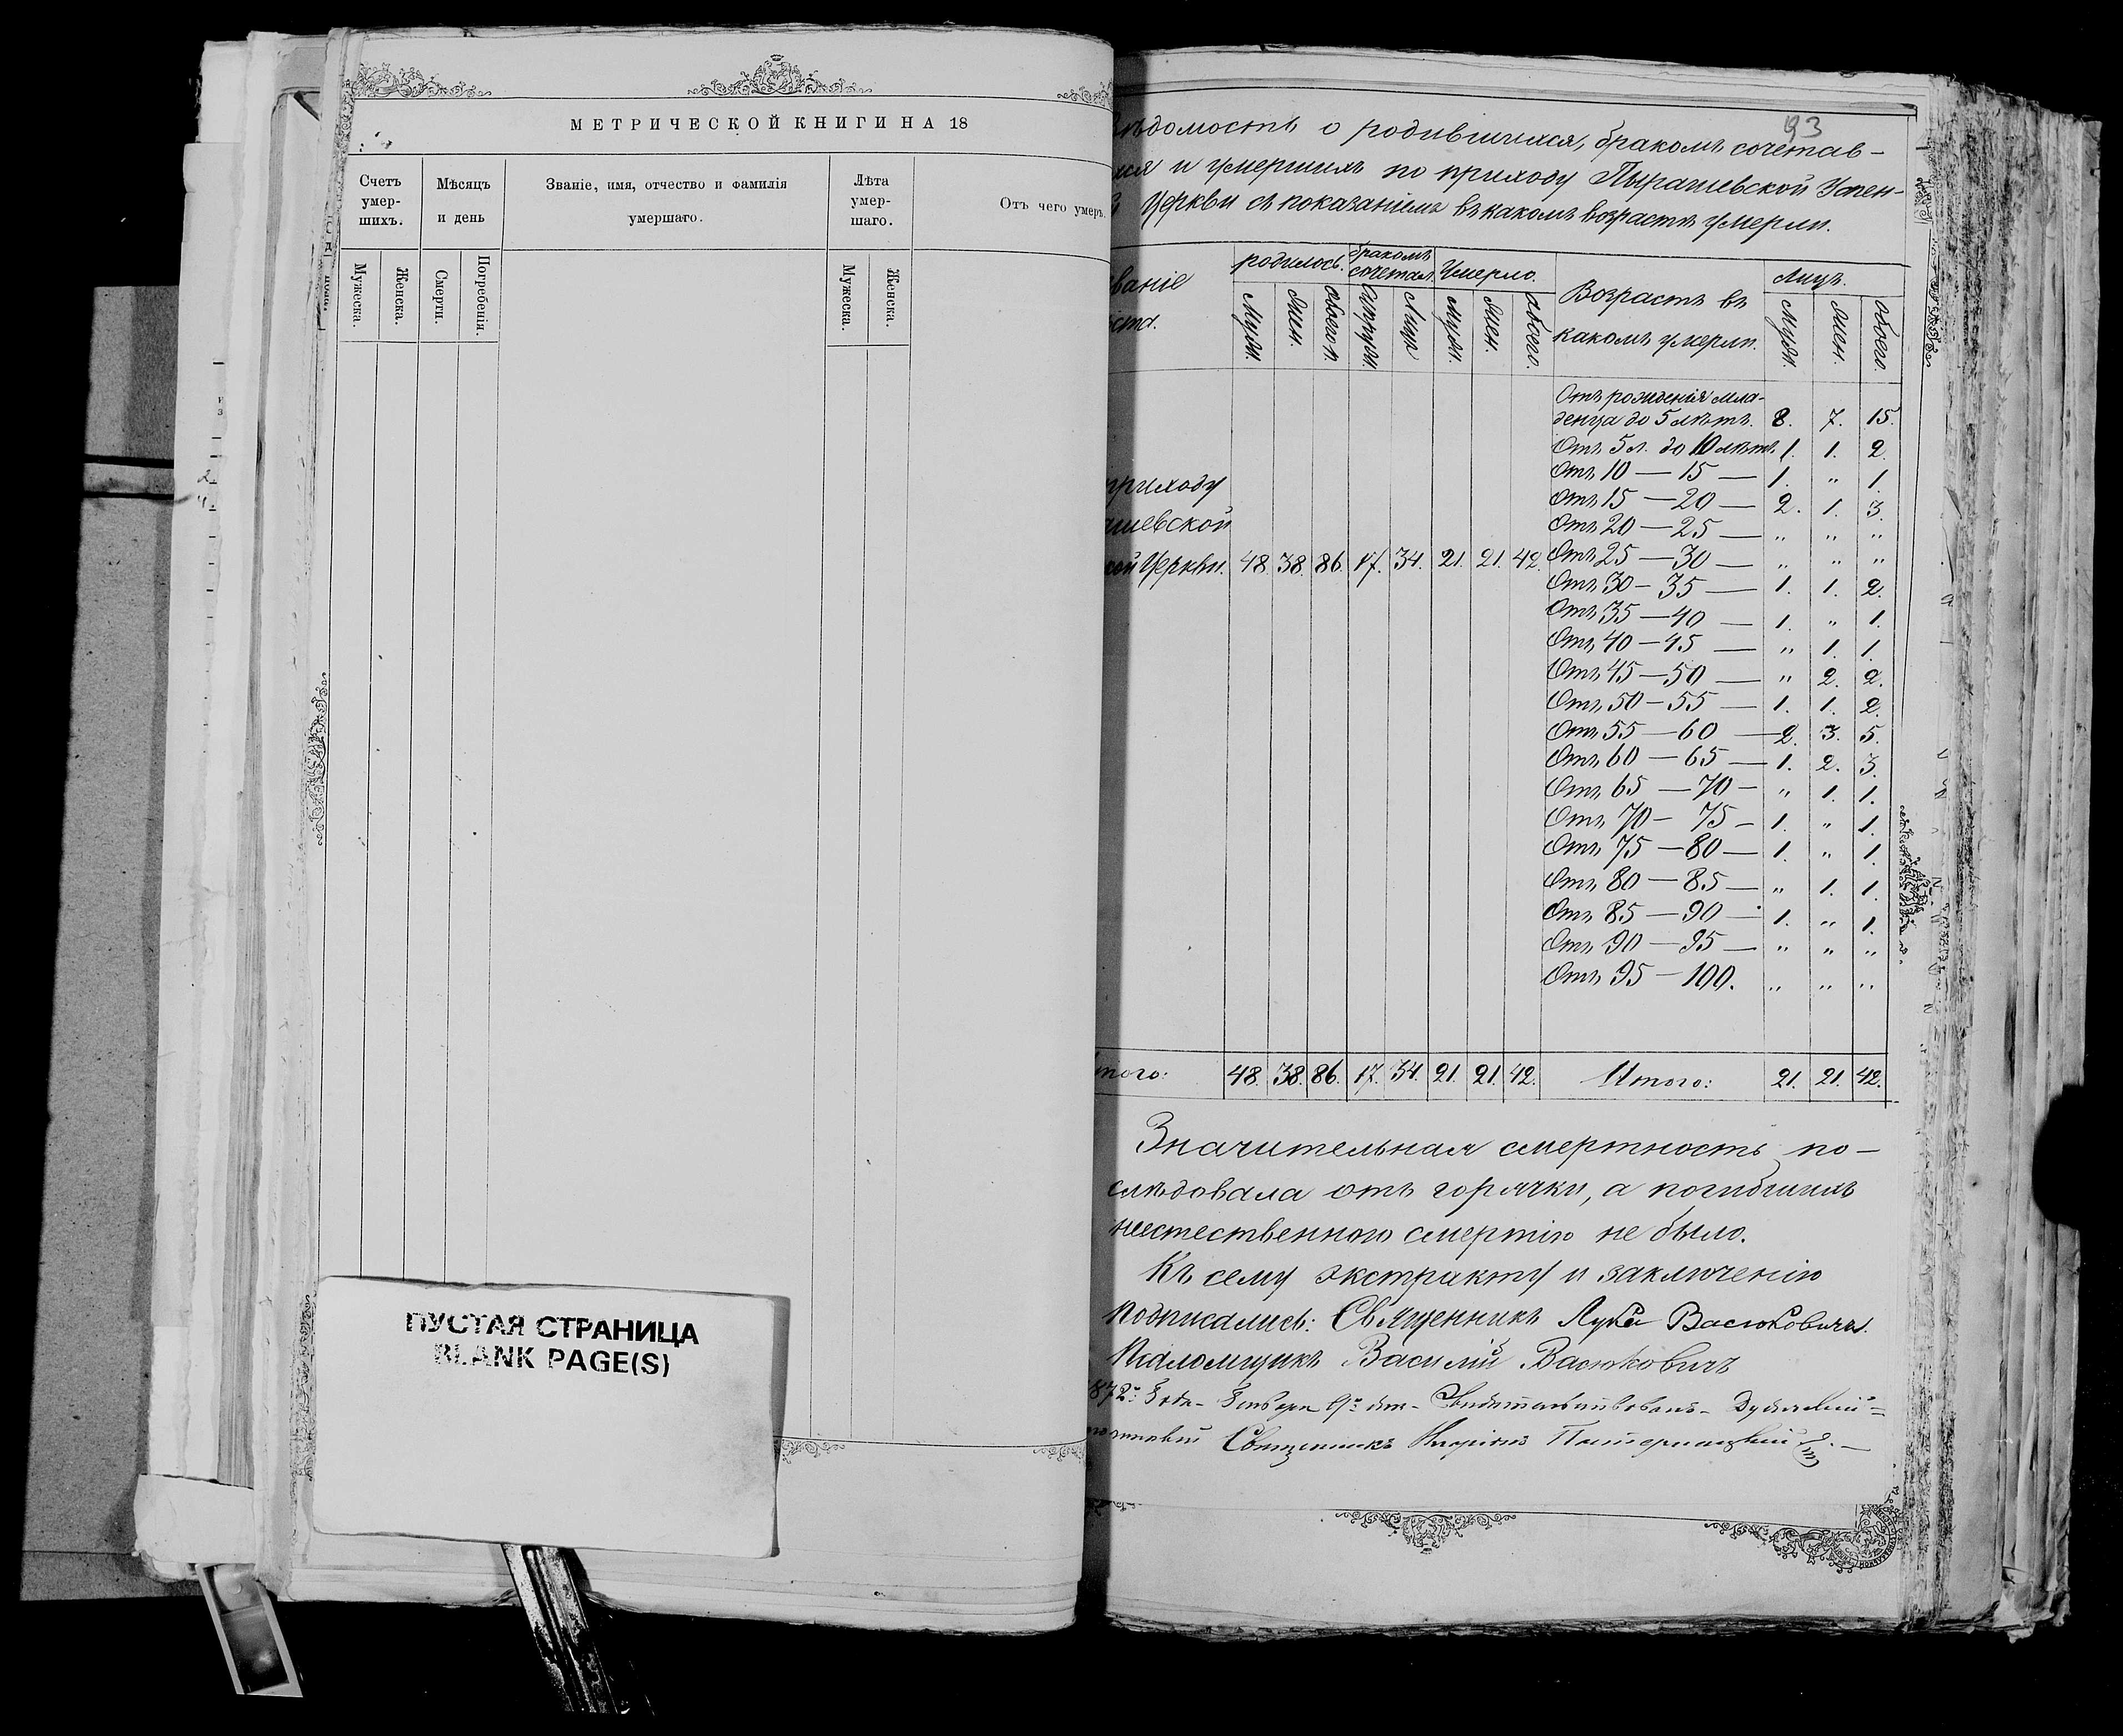 МЕТРИЧЕСКОЙ КНИГИ НА 18
Счетъ умер-шихъ.
Мѣсяцъ и день
Званіе, имя, отчество и фамилія умершаго.
Лѣта умер-шаго.
Отъ чего умеръ.
Мужеска.
Женска.
Смерти.
Погребенія.
Мужеска.
Женска.
ПУСТАЯ СТРАНИЦА
BLANK PAGE(S)
93
вѣдомость о родившихся, бракомъ сочетав-
хся и умершихъ по приходу Пырашевской Успен-
Церкви съ показаніемъ въ какомъ возрастѣ умерли.
званіе
ста.
родилось.
бракомъ сочетал.
Умерло.
Возрастъ въ какомъ умерли.
Лицъ.
Муж. Жен. обоего п. супруж. Лицъ муж. Жен. обоего.
Муж. Жен. обоего.
Отъ рожденія мла-
денца до 5 лѣтъ. 8. 7. 15.
Отъ 5 л. до 10 лѣтъ. 1. 1. 2.
Отъ 10 — 15 — 1. " 1.
Отъ 15 — 20 — 2. 1. 3.
Отъ 20 — 25 — " " "
Отъ 25 — 30 — " " "
Отъ 30 — 35 — 1. 1. 2.
Отъ 35 — 40 — 1. " 1.
Отъ 40 — 45 — " 1. 1.
Отъ 45 — 50 — " 2. 2.
Отъ 50 — 55 — 1. 1. 2.
Отъ 55 — 60 — 2. 3. 5.
Отъ 60 — 65 — 1. 2. 3.
Отъ 65 — 70 — " 1. 1.
Отъ 70 — 75 — 1. " 1.
Отъ 75 — 80 — 1. " 1.
Отъ 80 — 85 — " 1. 1.
Отъ 85 — 90 — 1. " 1.
Отъ 90 — 95 — " " "
Отъ 95 — 100. " " "
приходу
ашевской
кой Церкви. 48. 38. 86. 17. 34. 21. 21. 42.
того: 48. 38. 86. 17. 34. 21. 21. 42. Итого: 21. 21. 42.
Значительная смертность по-
слѣдовала отъ горячки, а погибшихъ
неестественною смертію не было.
Къ сему экстракту и заключенію
подписались: Священникъ Лука Васюковичъ.
Псаломщикъ Василій Васюковичъ
872го Года Генваря 9го дня Свидѣтельствовалъ
Священникъ Иларіонъ